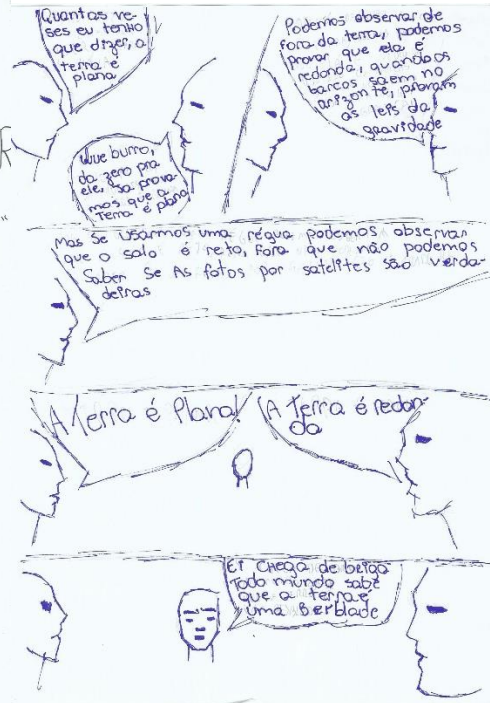 Quantas ve-
ses eu tenho
que dizer, a
terra é
plana
Que burro,
da zero pra
ele, Ja prova-
mos que a
Terra é plana
Podemos observar de
fora da terra, podemos
provar que ela é
redonda, quando os
barcos saem no
orizonte, provam
as leis da
gravidade
Mas Se usarmos uma régua podemos observar
que o solo é reto, Fora que não podemos
Saber Se As fotos por satelites são verda-
deiras
A Terra é Plana!
A Terra é redon-
da
Ei Chega de beiga
Todo mundo sabe
que a terra é
uma Berblade